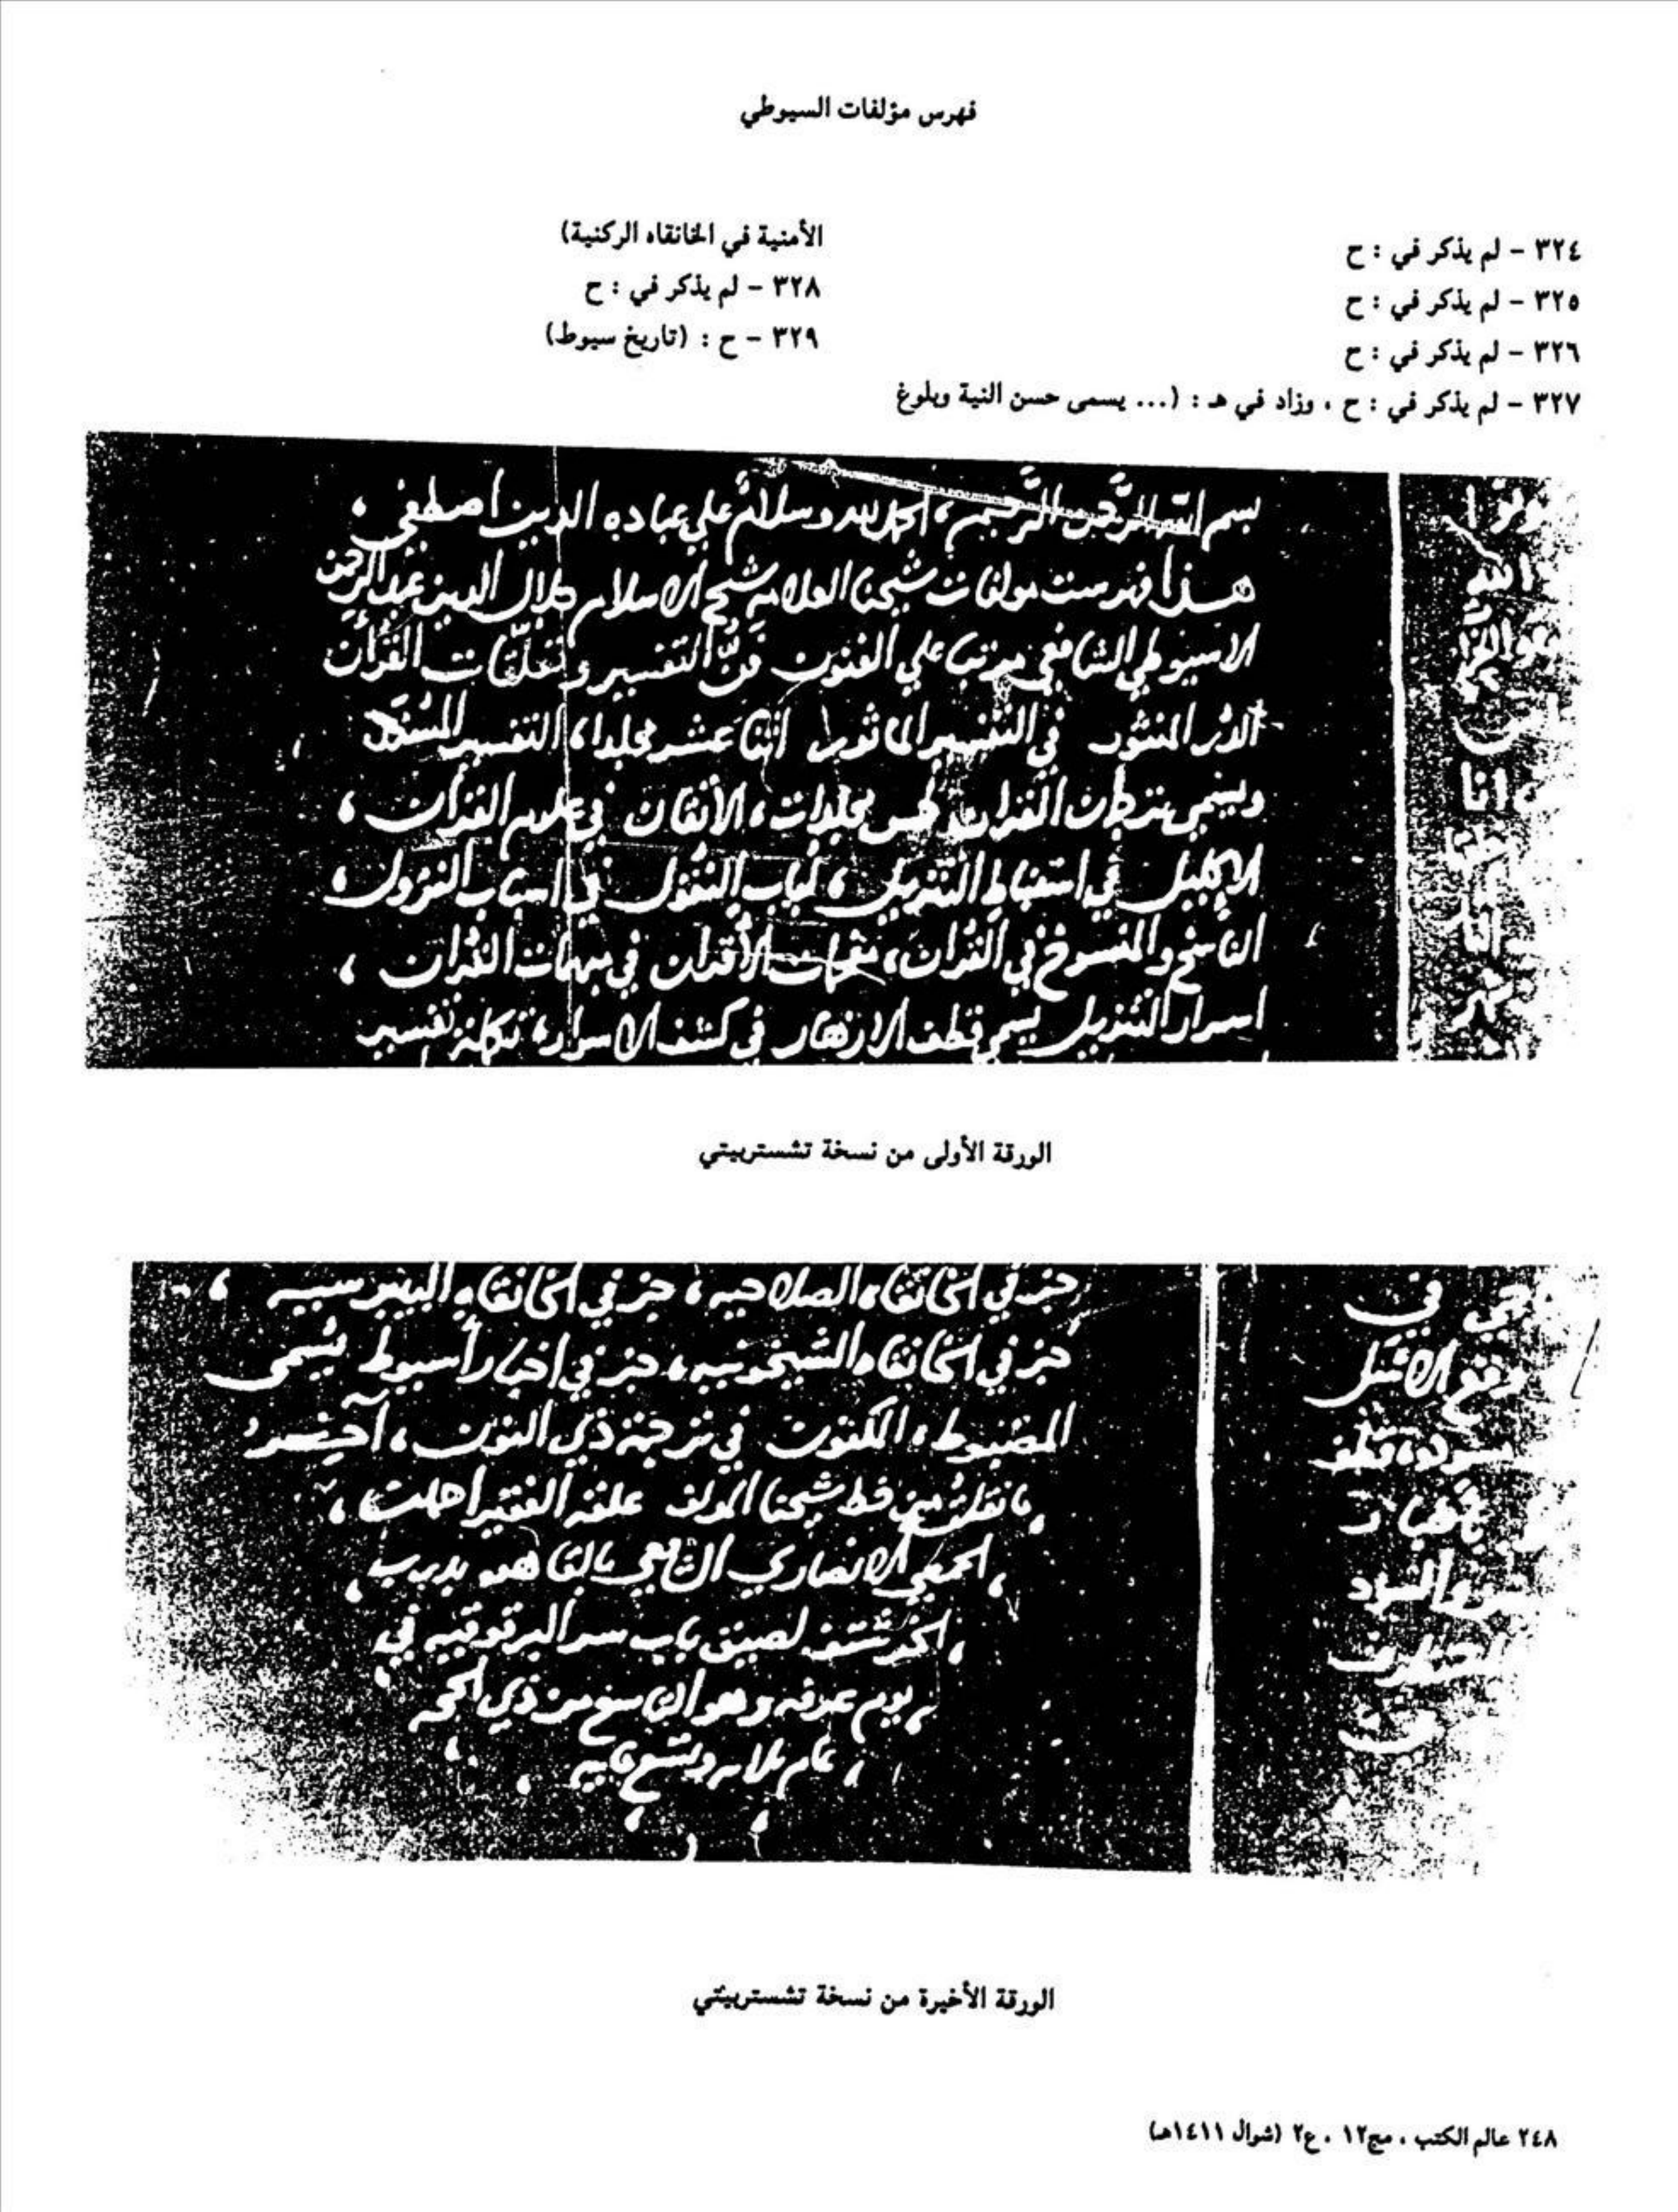 فهرس مؤلفات السيوطي
٣٢٤ - لم يذكر في : ح
٣٢٥ - لم يذكر في : ح
٣٢٦ - لم يذكر في : ح
٣٢٧ - لم يذكر في : ح ، وزاد في هـ : (... يسمى حسن النية وبلوغ
الأمنية في الخانقاه الركنية)
٣٢٨ - لم يذكر في : ح
٣٢٩ - ح : (تاريخ سيوط)
بسم الله الرحمن الرحيم ، الحمد لله وسلام علي عباده الدين اصطفي ،
هذا فهرست مولفات شيخنا العلامة شيخ الاسلام جلال الدين عبد الرحمن
الاسيوطي الشافعي مرتبا علي الفنون فن التفسير وتعلقات القرآن
الدر المنثور في التفسير الماثور اثنا عشر مجلدا ، التفسير المسند
ويسمي ترجمان القران خمس مجلدات ، الاتقان في علوم القرآن ،
الاكليل في استنباط التنزيل ، لباب النقول في اسباب النزول ،
الناسخ والمنسوخ في القرآن ، مفحمات الأقران في مبهمات القرآن ،
اسرار التنزيل يسمي قطف الازهار في كشف الاسرار ، تكملة تفسير
الورقة الأولى من نسخة تشستربيتي
جزء في الخانقاه الصلاحيه ، جزء في الخانقاه البيبرسيه ،
جزء في الخانقاه الشيخونيه ، جزء في اخبار أسيوط يسمى
المضبوط ، المكنون في ترجمة ذي النون ، آخر
ما نقلت من خط شيخنا المولف علقه الفقير
الانصاري الشافعي بالقاهره بدرب
لصيق باب سر البرقوقيه في
يوم عرفه وهو التاسع من ذي الحجه
عام
الورقة الأخيرة من نسخة تشستربيتي
٢٤٨ عالم الكتب ، مج١٢ ، ع٢ (شوال ١٤١١هـ)